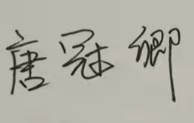 唐冠卿